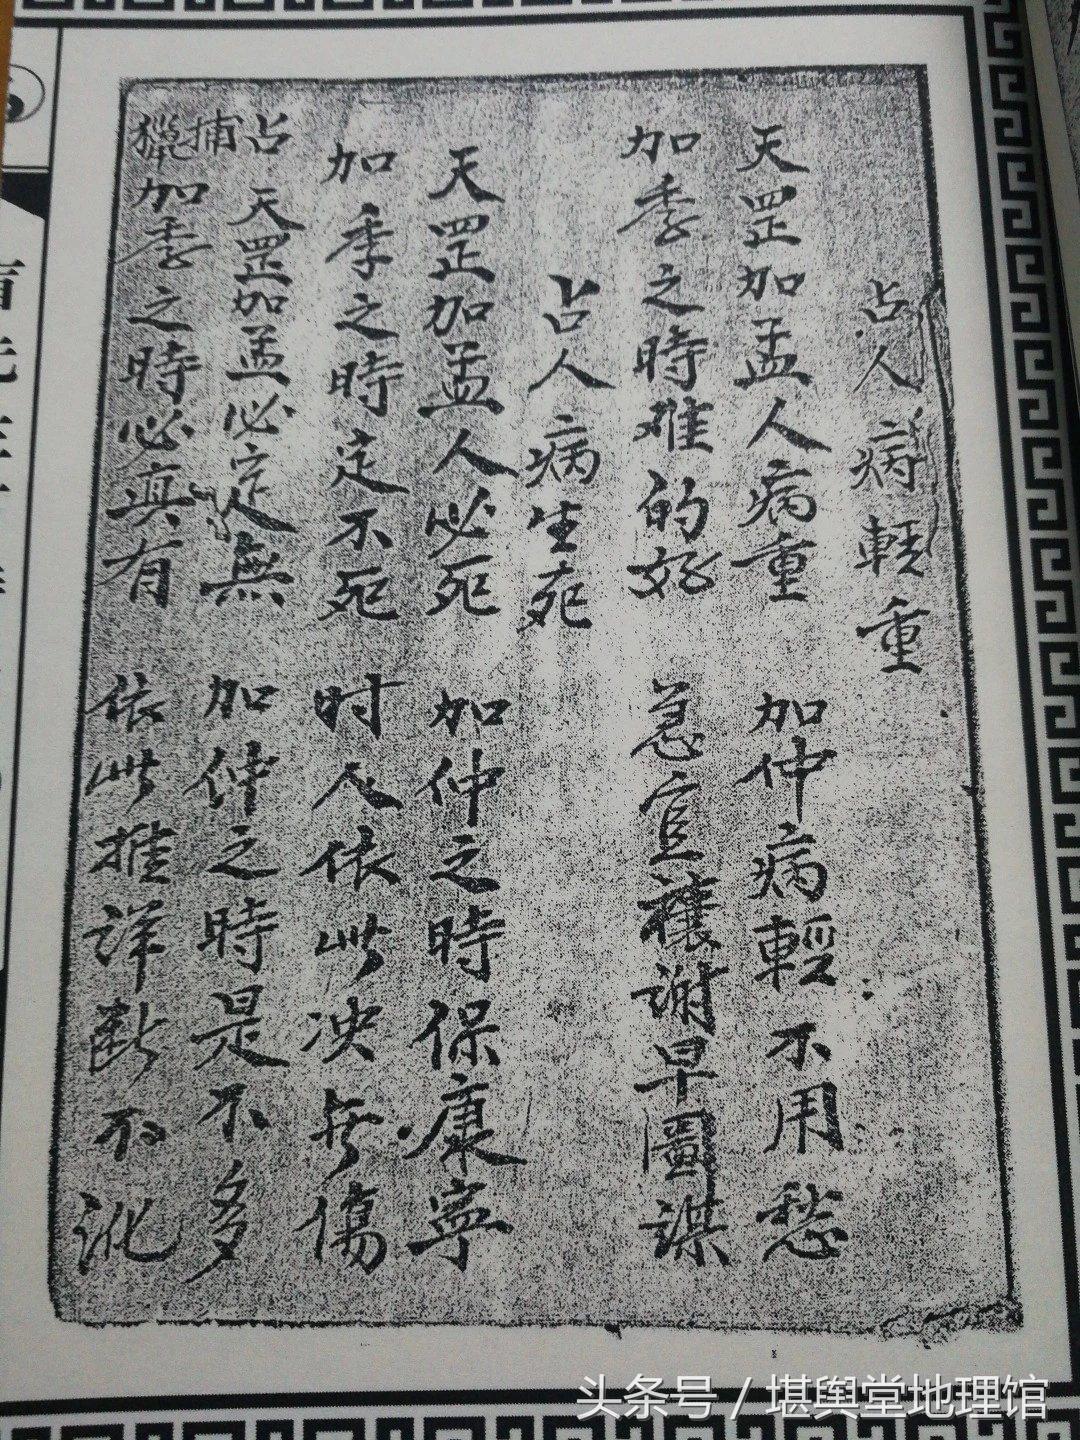 占人病輕重
天罡加孟人病重 加仲病輕不用愁
加季之時难的好 急宜禳謝早圖謀
占人病生死
天罡加孟人必死 加仲之時保康寧
加季之時定不死 时人依此决無傷
占捕獵
天罡加孟必定無 加仲之時是不多
加季之時必真有 依此推詳断不訛
头条号 / 堪舆堂地理馆